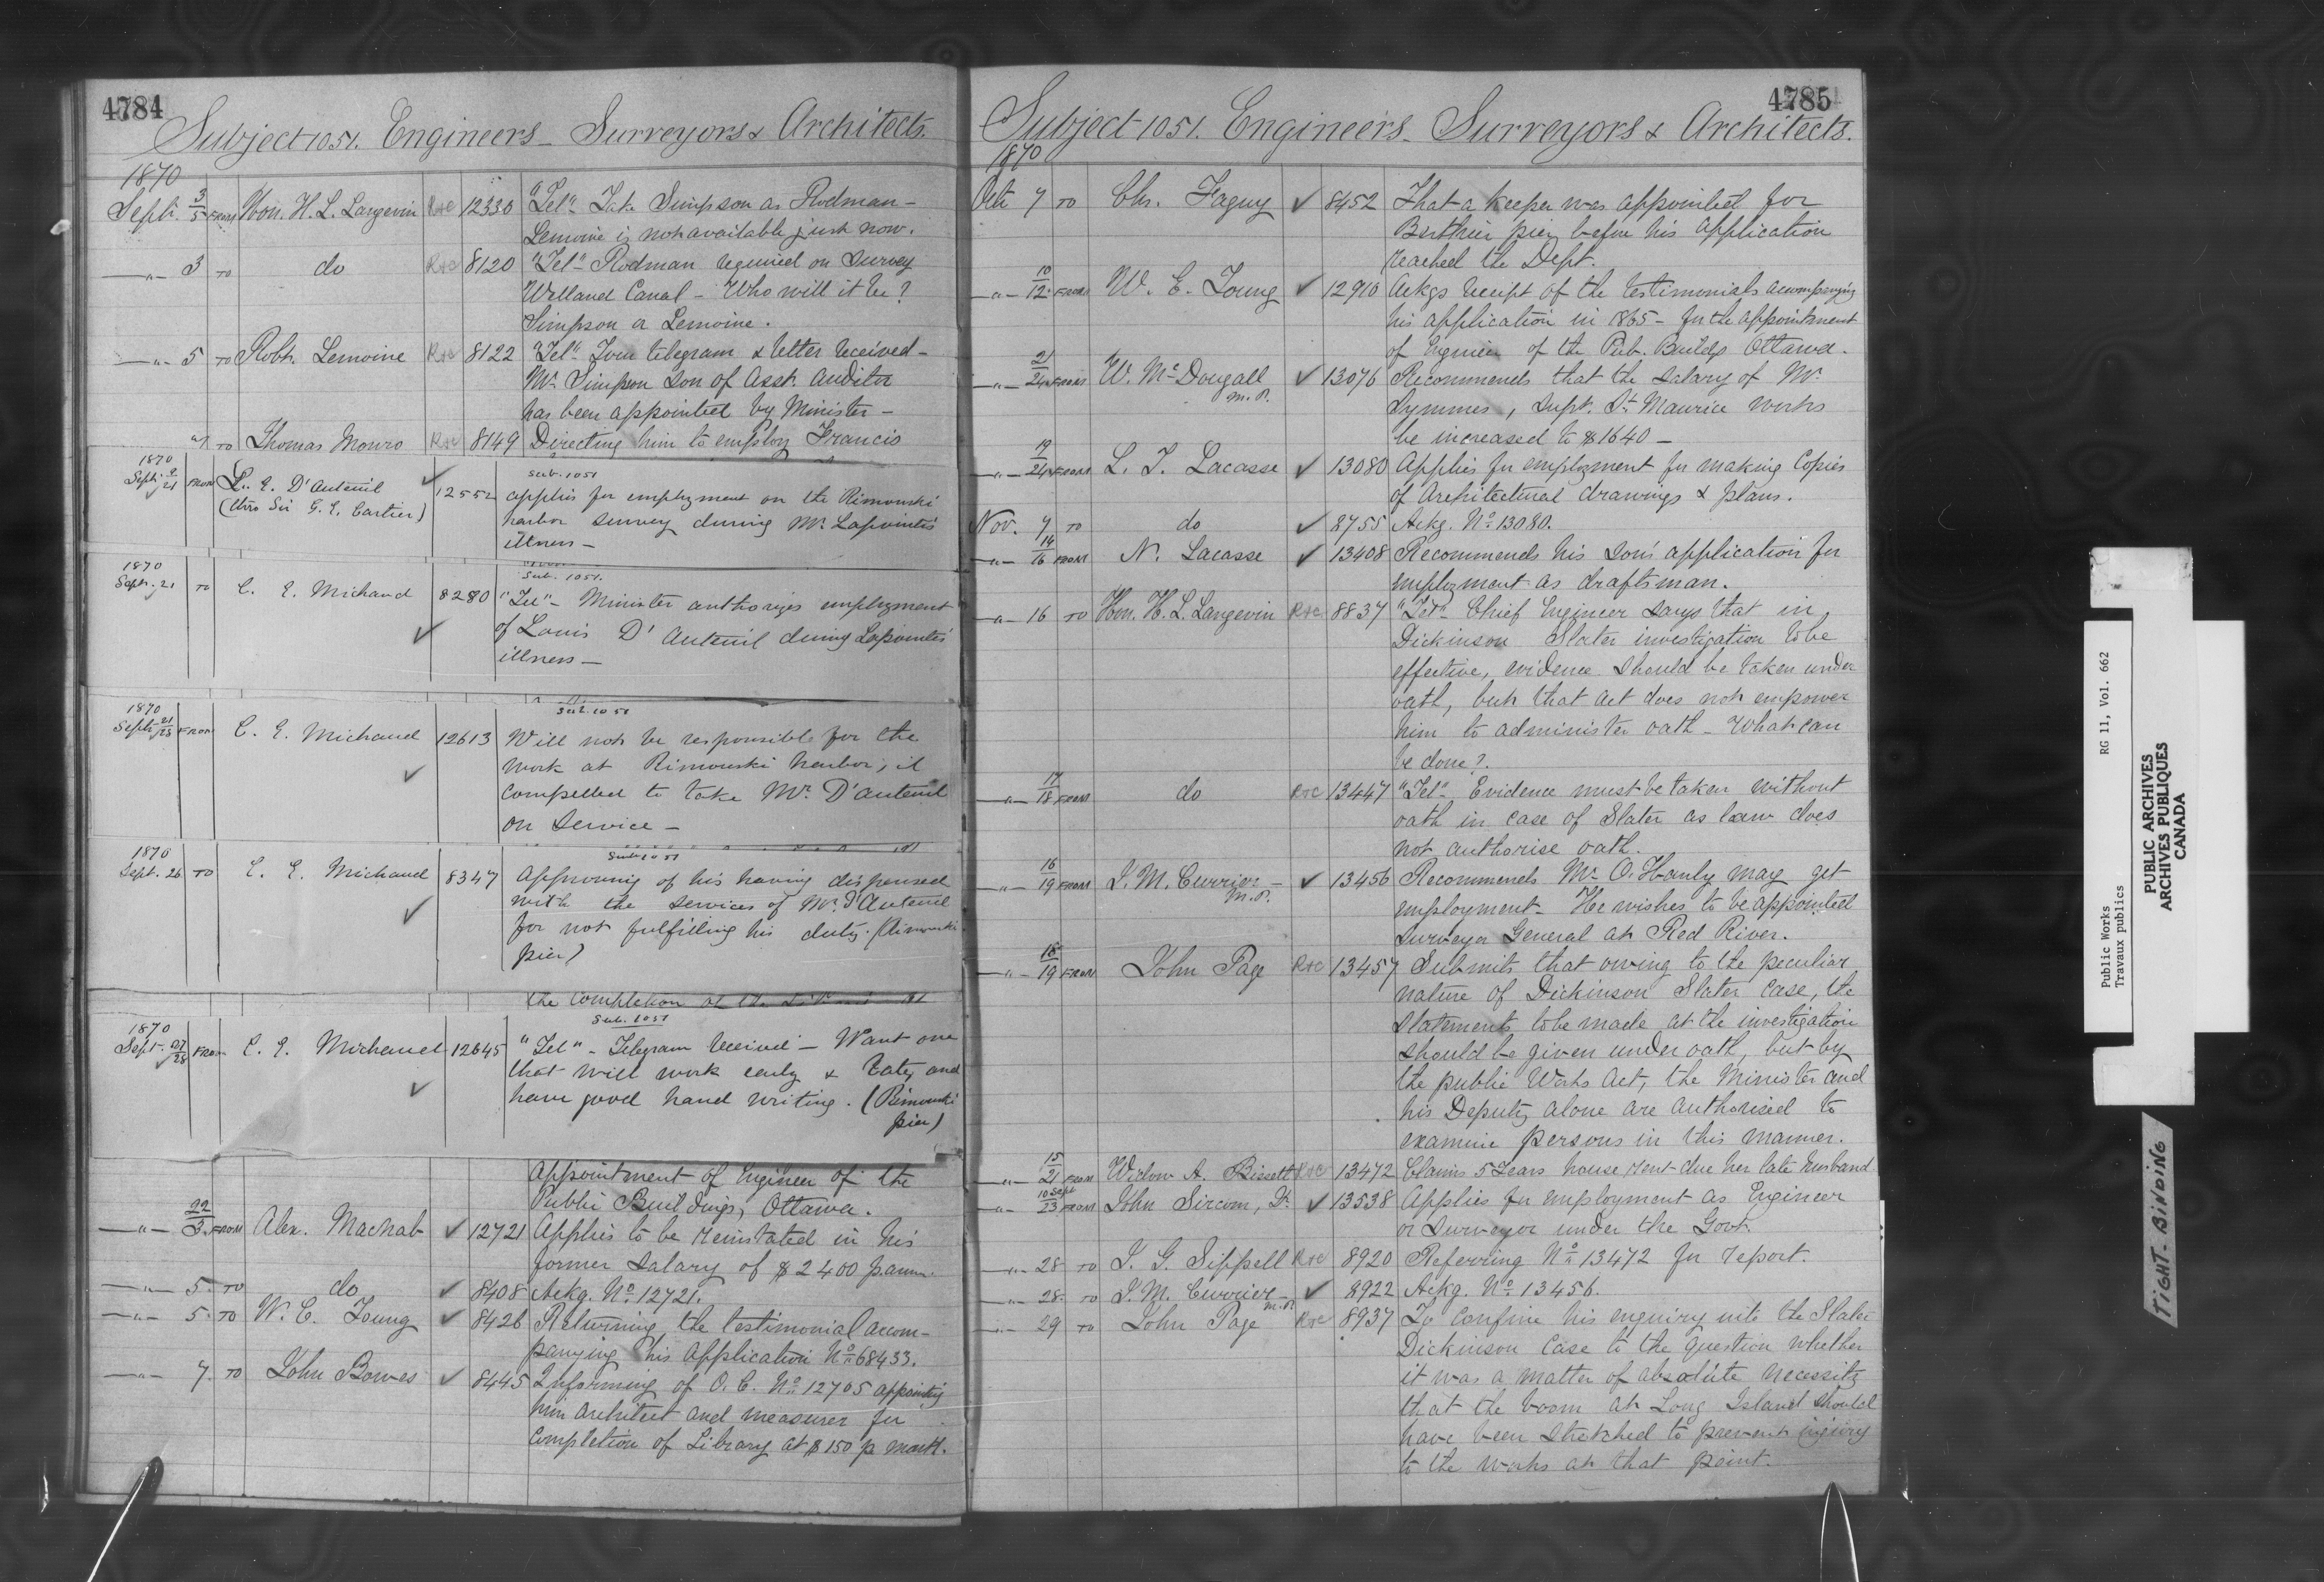 4784
Subject 1051. Engineers - Surveyors & Architects.
1870
Sept. 3/5 FROM Hon. H. L. Langevin Rec 12330 "Tel" Take Simpson as Rodman -
Lemoine is not available just now.
-"- 3 TO do Rec 8120 "Tel" Rodman required on Survey
Welland Canal - Who will it be?
Simpson or Lemoine.
-"- 5 TO Robt. Lemoine Rec 8122 "Tel" Your telegram & letter received -
Mr. Simpson son of Asst. Auditor
has been appointed by Minister -
TO Thomas Monro Rec 8149 Directing him to employ Francis
1870 Sub. 1051
Sept. 9/21 FROM L. E. D'Auteuil ✓ 12552 applies for employment on the Rimouski
(thro Sir G. E. Cartier) harbor survey during Mr. Lapointe's
illness -
1870 Sub. 1051.
Sept. 21 TO C. E. Michaud ✓ 8280 "Tel" - Minister authorizes employment
of Louis D'Auteuil during Lapointe's
illness -
1870 Sub. 1051
Sept. 21/23 FROM C. E. Michaud ✓ 12613 Will not be responsible for the
work at Rimouski harbor, if
compelled to take Mr. D'Auteuil
on service -
1870 Sub 1051
Sept. 26 TO C. E. Michaud ✓ 8347 Approving of his having dispensed
with the services of Mr. D'Auteuil
for not fulfilling his duty. (Rimouski
pier)
the completion of the
1870 Sub. 1051
Sept. 27/28 FROM C. E. Michaud ✓ 12645 "Tel" - Telegram received - Want one
that will work early & late, and
have good hand writing. (Rimouski
pier)
appointment of Engineer of the
Public Buildings, Ottawa.
-"- 22/3 FROM Alex. Macnab ✓ 12721 Applies to be reinstated in his
former salary of $2400 p. ann.
-"- 5 TO do ✓ 8408 Ackg. No. 12721.
-"- 5 TO W. E. Young ✓ 8426 Returning the testimonial accom-
panying his application No. 68433.
-"- 7 TO John Bowes ✓ 8445 Informing of O. C. No. 12705 appointing
him architect and measurer for
completion of Library at $150 p. month.
4785
Subject 1051. Engineers - Surveyors & Architects.
1870
Oct. 7 TO Chs. Faguy ✓ 8452 That a keeper was appointed for
Berthier pier before his application
reached the Dept.
-"- 10/12 FROM W. E. Young ✓ 12910 Ackgs receipt of the testimonials accompanying
his application in 1865 - for the appointment
of Engineer of the Pub. Buildgs Ottawa.
-"- 21/24 FROM W. McDougall M.P. ✓ 13076 Recommends that the salary of Mr.
Symmes, Supt. St. Maurice works
be increased to $1640 -
-"- 19/24 FROM L. J. Lacasse ✓ 13080 Applies for employment for making Copies
of Architectural drawings & plans.
Nov. 7 TO do ✓ 8755 Ackg. No. 13080.
-"- 14/16 FROM N. Lacasse ✓ 13408 Recommends his son's application for
employment as draftsman.
-"- 16 TO Hon. H. L. Langevin Rec 8837 "Tel" Chief Engineer says that in
Dickinson Slater investigation to be
effective, evidence should be taken under
oath, but that act does not empower
him to administer oath - What can
be done?
-"- 17/18 FROM do Rec 13447 "Tel" Evidence must be taken without
oath in case of Slater as law does
not authorise oath.
-"- 16/19 FROM J. M. Currier - M.P. ✓ 13456 Recommends Mr. O. Hanly may get
employment - He wishes to be appointed
Surveyor General at Red River.
-"- 18/19 FROM John Page Rec 13457 Submits that owing to the peculiar
nature of Dickinson Slater case, the
statements to be made at the investigation
should be given under oath, but by
the public Works Act, the Minister and
his Deputy alone are authorised to
examine persons in this manner.
-"- 15/21 FROM Widow A. Bissett Rec 13472 Claims 5 Years house rent due her late husband
-"- 10 Sept/23 FROM John Sircom, Jr. ✓ 13538 Applies for employment as Engineer
or Surveyor under the Govt.
-"- 28 TO J. G. Sippell Rec 8920 Referring No. 13472 for report.
-"- 28 TO J. M. Currier - M.P. ✓ 8922 Ackg. No. 13456.
-"- 29 TO John Page Rec 8937 To confine his enquiry into the Slater
Dickinson case to the question whether
it was a matter of absolute necessity
that the boom at Long Island should
have been stretched to prevent injury
to the works at that point.
Public Works RG 11, Vol. 662
Travaux publics
PUBLIC ARCHIVES
ARCHIVES PUBLIQUES
CANADA
TIGHT BINDING